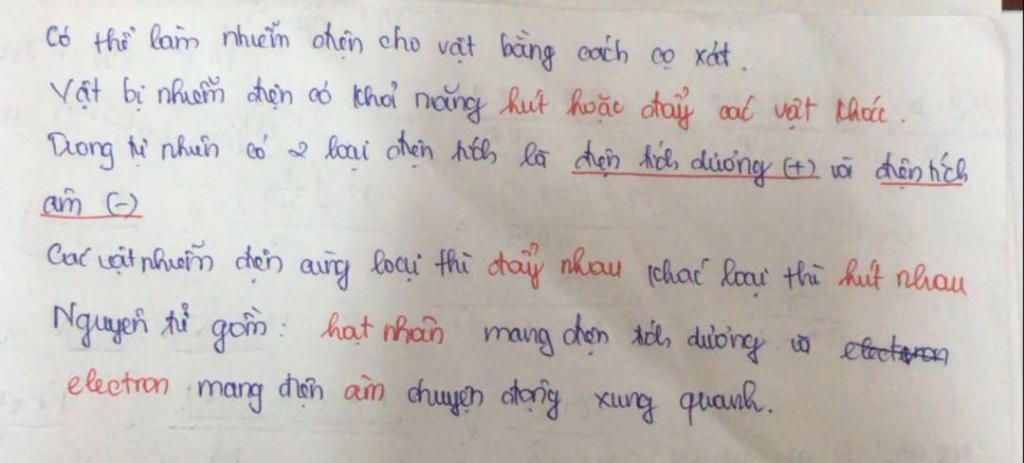 Có thể làm nhiễm điện cho vật bằng cách cọ xát.
Vật bị nhiễm điện có khả năng hút hoặc đẩy các vật khác.
Trong tự nhiên có 2 loại điện tích là điện tích dương (+) và điện tích
âm (-)
Các vật nhiễm điện cùng loại thì đẩy nhau khác loại thì hút nhau
Nguyên tử gồm: hạt nhân mang điện tích dương và electron
electron mang điện âm chuyện động xung quanh.